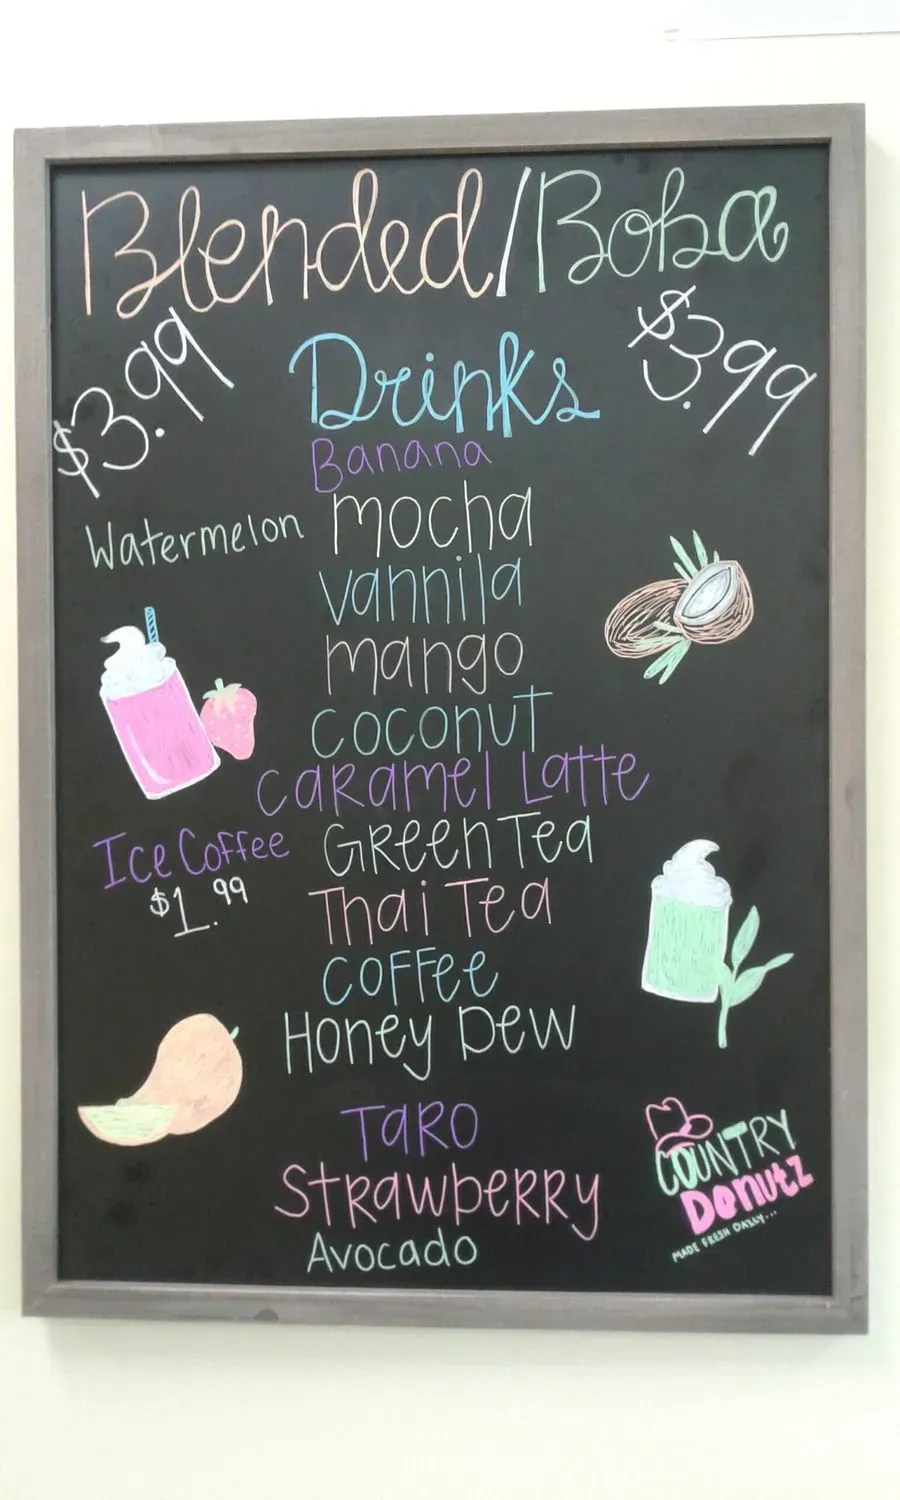 Blended/Boba
$3.99
$3.99
Drinks
Banana
Watermelon
mocha
vannila
mango
coconut
Caramel Latte
Ice Coffee
$1.99
Green Tea
Thai Tea
Coffee
Honey Dew
Taro
Strawberry
Avocado
COUNTRY
Donutz
MADE FRESH DAILY...